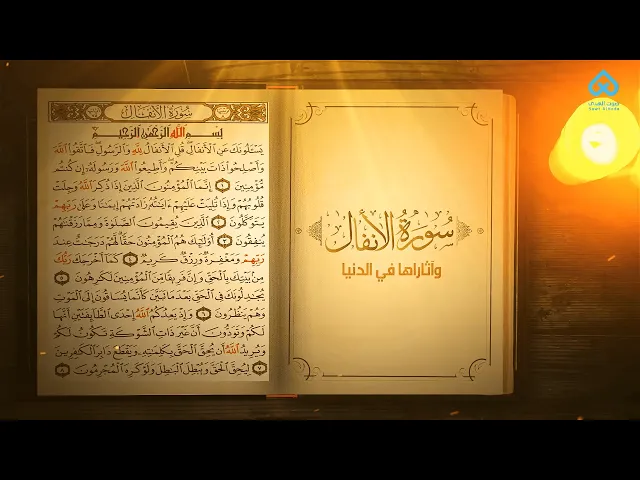 سُورَةُ الأَنْفَال
بِسْمِ اللَّهِ الرَّحْمَٰنِ الرَّحِيمِ
يَسْـَٔلُونَكَ عَنِ ٱلْأَنفَالِ ۖ قُلِ ٱلْأَنفَالُ لِلَّهِ وَٱلرَّسُولِ ۖ فَٱتَّقُوا۟ ٱللَّهَ
وَأَصْلِحُوا۟ ذَاتَ بَيْنِكُمْ ۖ وَأَطِيعُوا۟ ٱللَّهَ وَرَسُولَهُۥٓ إِن كُنتُم
مُّؤْمِنِينَ ١ إِنَّمَا ٱلْمُؤْمِنُونَ ٱلَّذِينَ إِذَا ذُكِرَ ٱللَّهُ وَجِلَتْ
قُلُوبُهُمْ وَإِذَا تُلِيَتْ عَلَيْهِمْ ءَايَٰتُهُۥ زَادَتْهُمْ إِيمَٰنًا وَعَلَىٰ رَبِّهِمْ
يَتَوَكَّلُونَ ٢ ٱلَّذِينَ يُقِيمُونَ ٱلصَّلَوٰةَ وَمِمَّا رَزَقْنَٰهُمْ
يُنفِقُونَ ٣ أُو۟لَٰٓئِكَ هُمُ ٱلْمُؤْمِنُونَ حَقًّا ۚ لَّهُمْ دَرَجَٰتٌ عِندَ
رَبِّهِمْ وَمَغْفِرَةٌ وَرِزْقٌ كَرِيمٌ ٤ كَمَآ أَخْرَجَكَ رَبُّكَ
مِنۢ بَيْتِكَ بِٱلْحَقِّ وَإِنَّ فَرِيقًا مِّنَ ٱلْمُؤْمِنِينَ لَكَٰرِهُونَ ٥
يُجَٰدِلُونَكَ فِى ٱلْحَقِّ بَعْدَ مَا تَبَيَّنَ كَأَنَّمَا يُسَاقُونَ إِلَى ٱلْمَوْتِ
وَهُمْ يَنظُرُونَ ٦ وَإِذْ يَعِدُكُمُ ٱللَّهُ إِحْدَى ٱلطَّآئِفَتَيْنِ أَنَّهَا
لَكُمْ وَتَوَدُّونَ أَنَّ غَيْرَ ذَاتِ ٱلشَّوْكَةِ تَكُونُ لَكُمْ
وَيُرِيدُ ٱللَّهُ أَن يُحِقَّ ٱلْحَقَّ بِكَلِمَٰتِهِۦ وَيَقْطَعَ دَابِرَ ٱلْكَٰفِرِينَ
٧ لِيُحِقَّ ٱلْحَقَّ وَيُبْطِلَ ٱلْبَٰطِلَ وَلَوْ كَرِهَ ٱلْمُجْرِمُونَ ٨
سُورَةُ الأنفال
وآثاراها في الدنيا